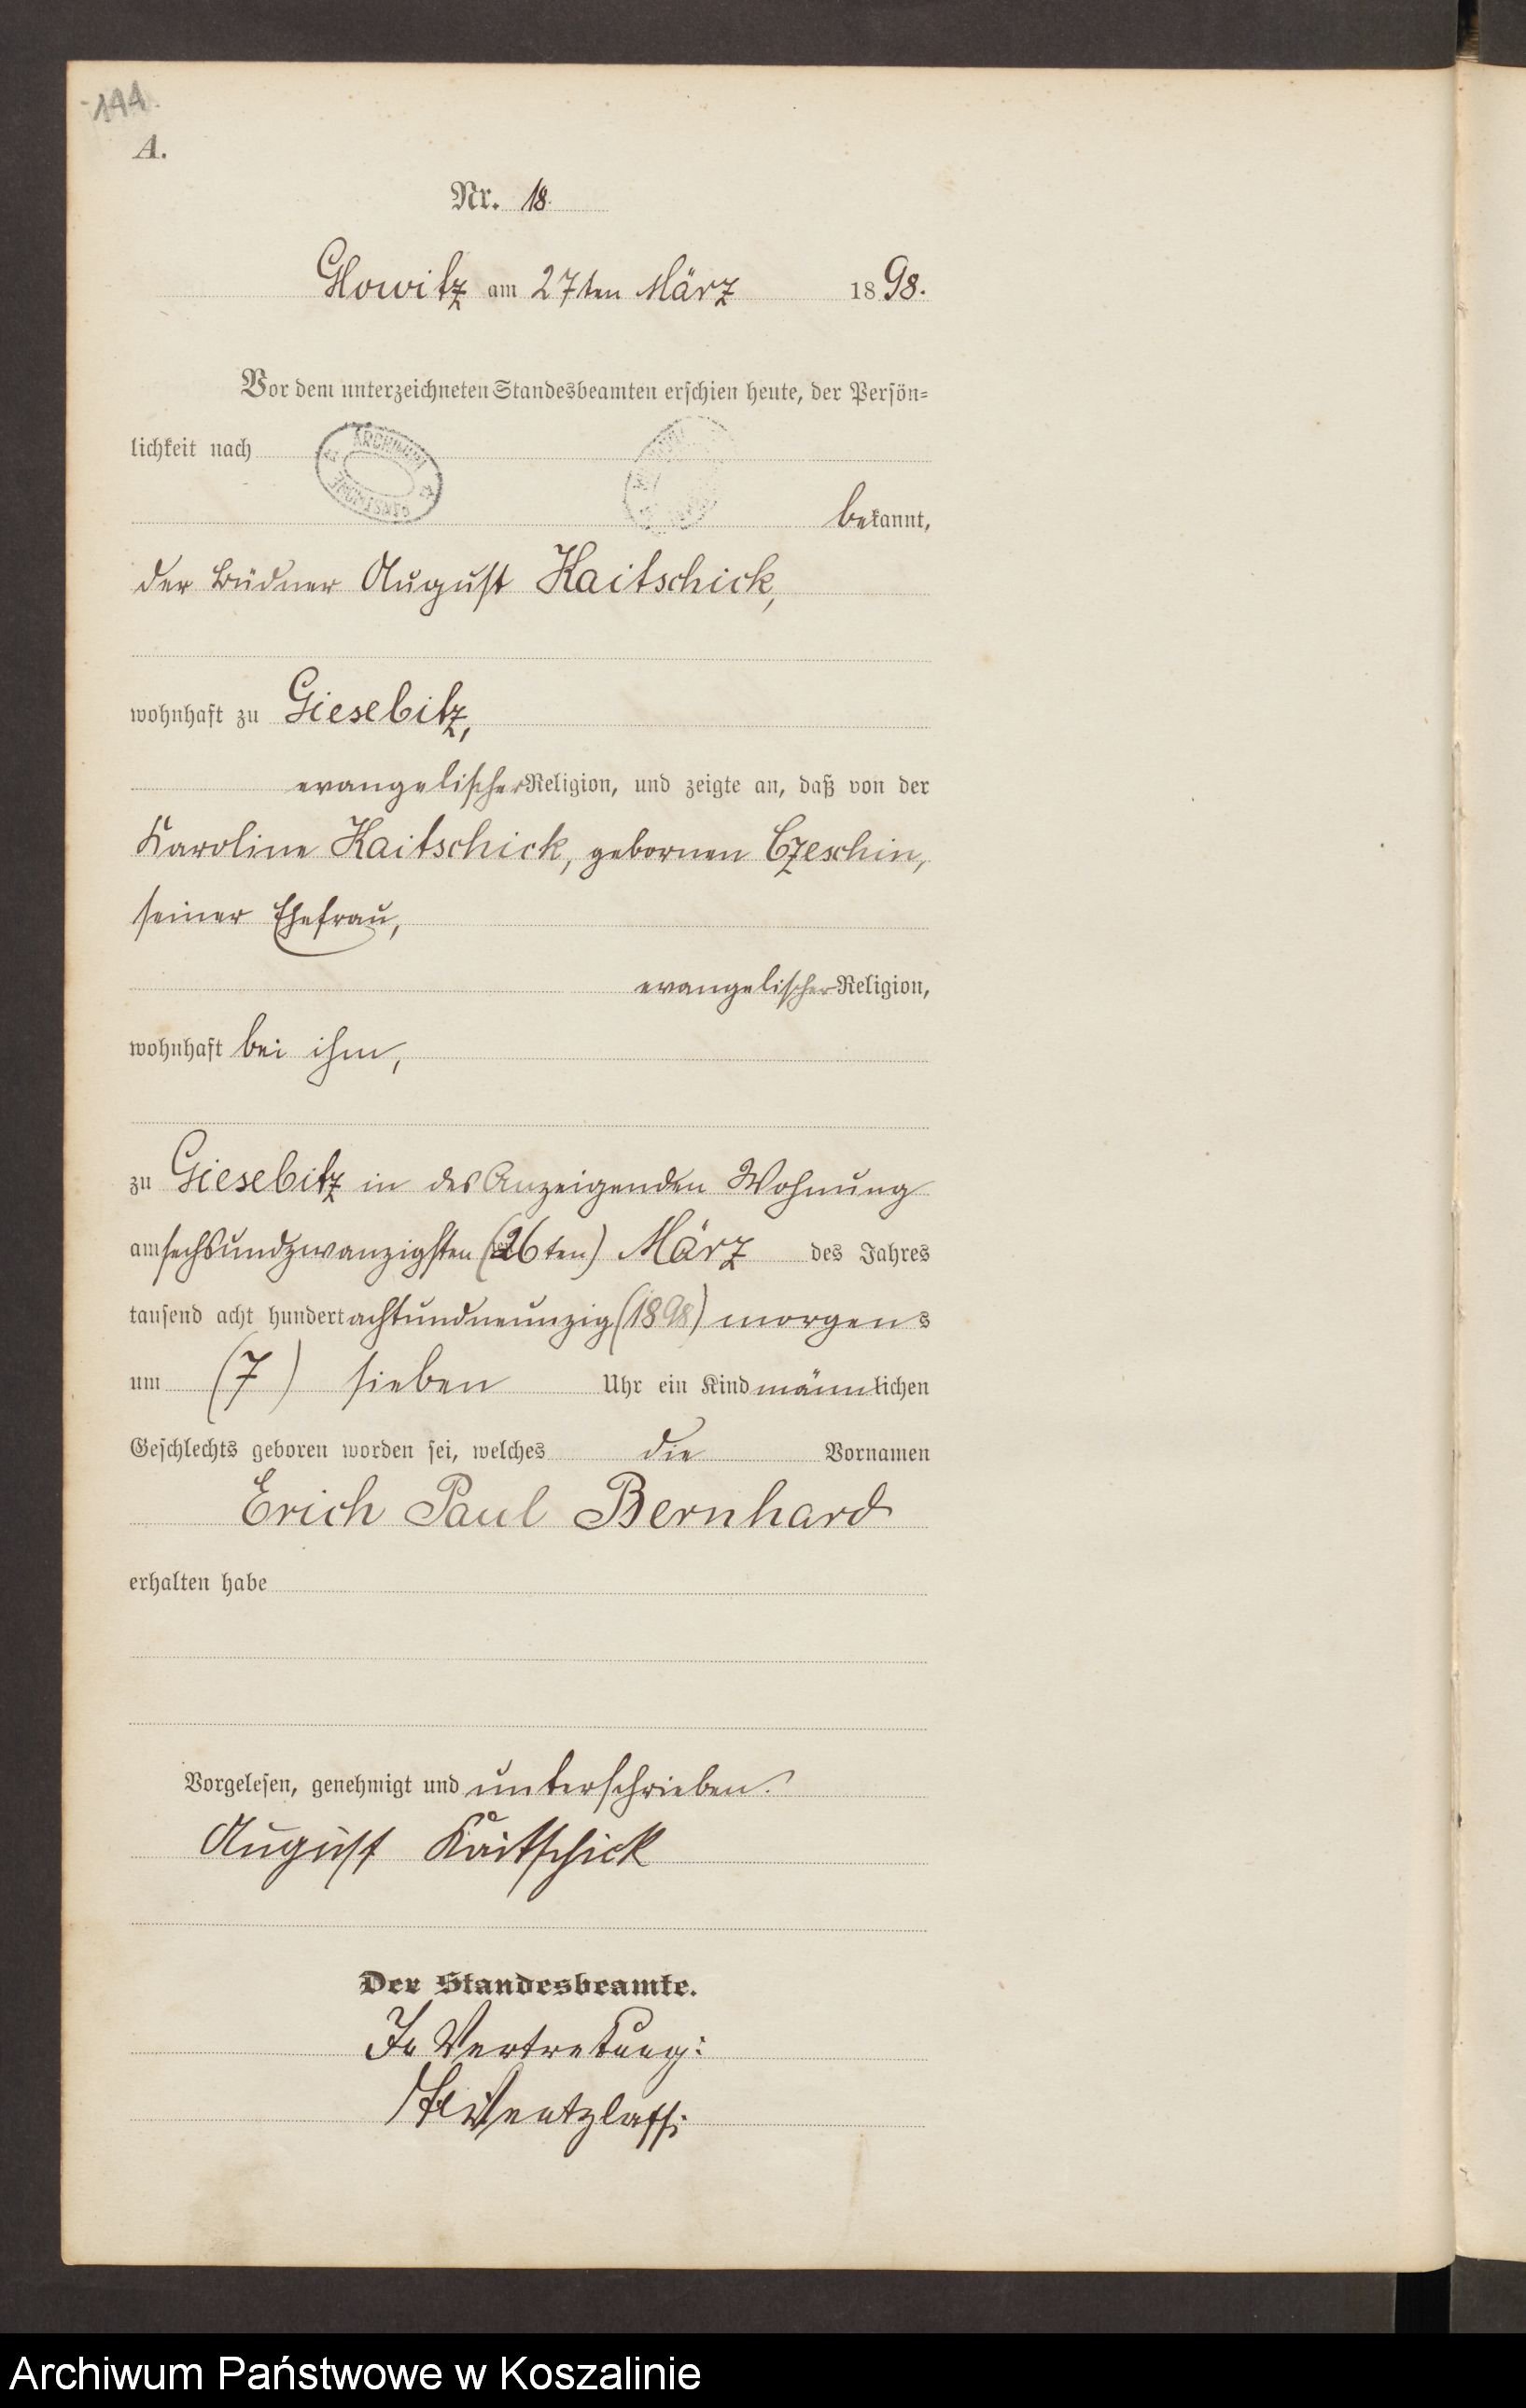 144.
A.
Nr. 18.
Glowitz am 27ten März 1898.
Vor dem unterzeichneten Standesbeamten erschien heute, der Persön=
lichkeit nach
bekannt,
der Büdner August Kaitschick,
wohnhaft zu Giesebitz,
evangelischer Religion, und zeigte an, daß von der
Karoline Kaitschick, gebornen Czeschin,
seiner Ehefrau,
evangelischer Religion,
wohnhaft bei ihm,
zu Giesebitz in des Anzeigenden Wohnung
am sechsundzwanzigsten (26ten) März des Jahres
tausend acht hundert achtundneunzig (1898) morgens
um (7) sieben Uhr ein Kind männlichen
Geschlechts geboren worden sei, welches die Vornamen
Erich Paul Bernhard
erhalten habe
Vorgelesen, genehmigt und unterschrieben.
August Kaitschick
Der Standesbeamte.
In Vertretung:
Wentzlaff.
Archiwum Państwowe w Koszalinie